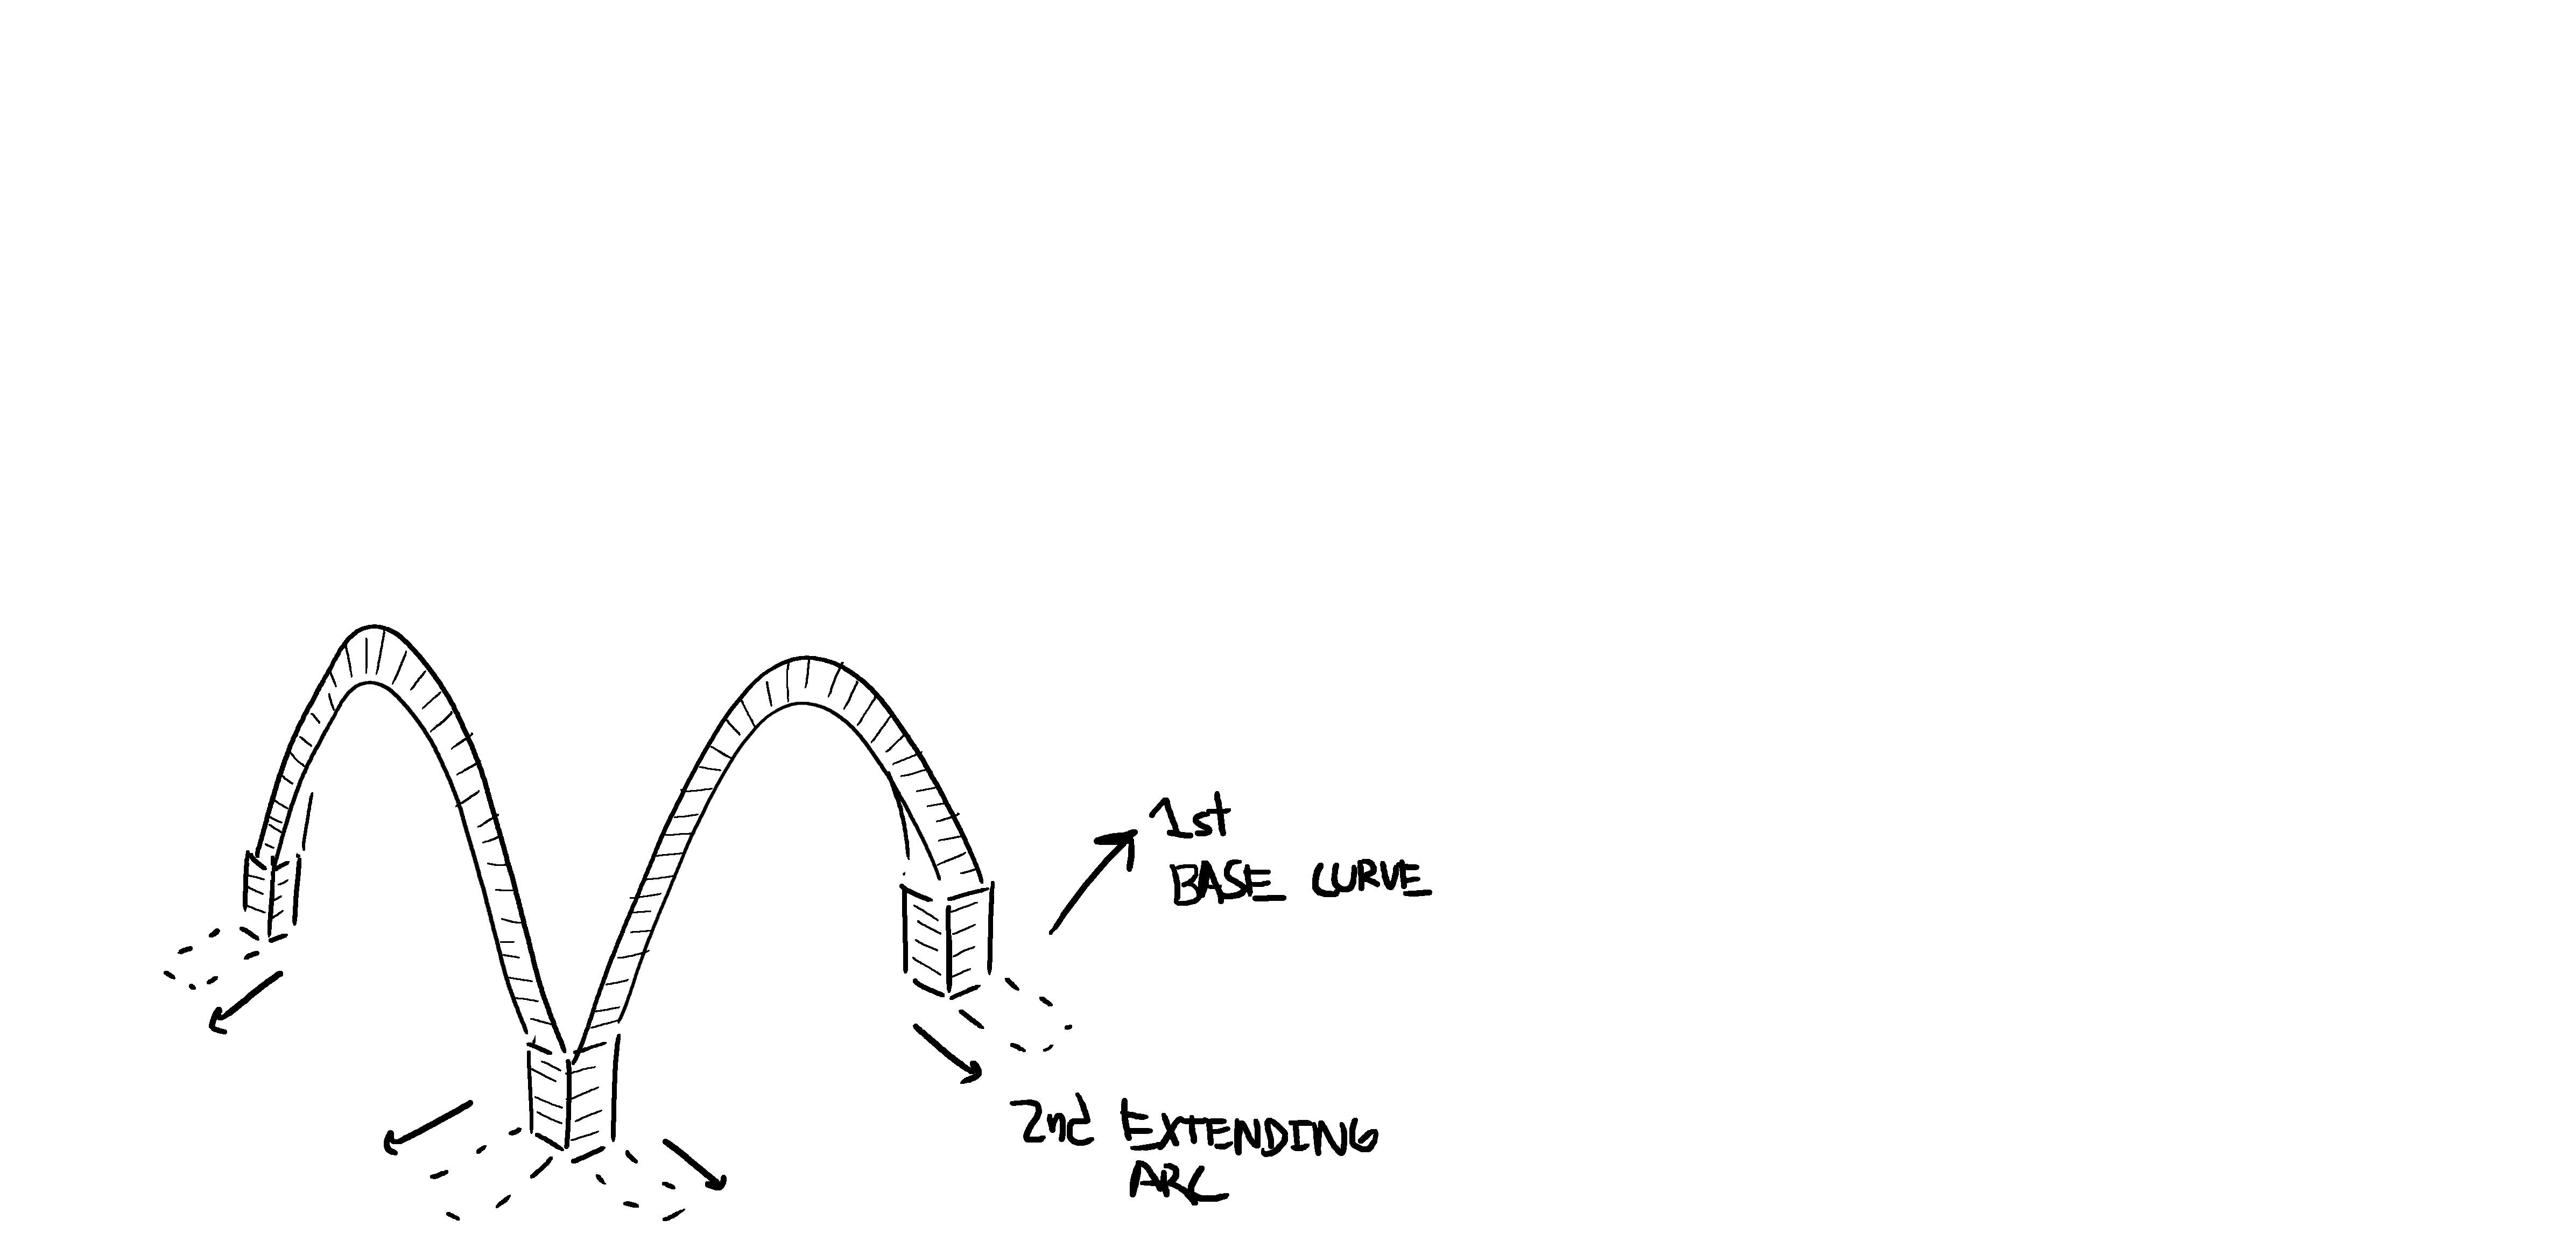 1st
BASE CURVE
2nd EXTENDING
ARC